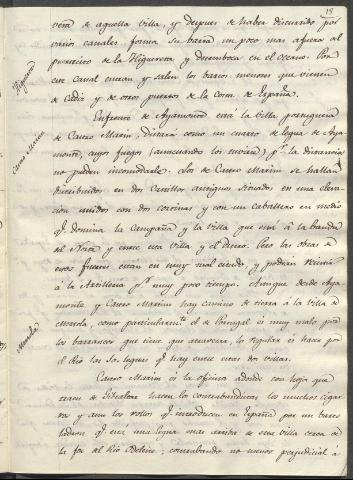 15
vera de aquella Villa, y despues de haber discurrido por
varios canales forma su barra un poco mas afuera al
promotorio de la Higuereta y desemboca en el oceano. Por
este canal entran y salen los barcos menores que vienen
de Cadiz y de otros puertos de la Costa de España.
Higuereta
Enfrente de Ayamonte está la Villa portuguesa
de Castro Marin, distará como un quarto de legua de Aya-
monte, cuyos fuegos (aunque los tuviera) pr. la distancia
no pueden incomodarle. Los de Castro Marin se hallan
Castro Marin
distribuidos en dos Castillos antiguos situados en una eleva-
cion unidos con dos cortinas y con un caballero en medio
qe. domina la Campaña y la Villa que está á la banda
del Norte y entre esta villa y el Puerto. Pero las obras de
estos fuertes estan en muy mal estado, y podrian resistir
á la Artilleria pr. muy poco tiempo. Aunque desde Aya-
monte y Castro Marin hay camino de tierra á la Villa de
Mertola, como particularmte. el de Portugal es muy malo por
Mertola
los barrancos que tiene que atravesar, lo regular es hacer por
el Rio las 10 leguas qe. hay entre estas dos villas.
Castro Marin es la oficina adonde con hoja que
traen de Gibraltar hacen los contrabandistas los muchos cigar-
ros y aun los rollos qe. introducen en España por un barco
ladron qe. está una legua mas arriba de esta villa cerca de
la foz del Rio Odeleite; contrabando no menos perjudicial á